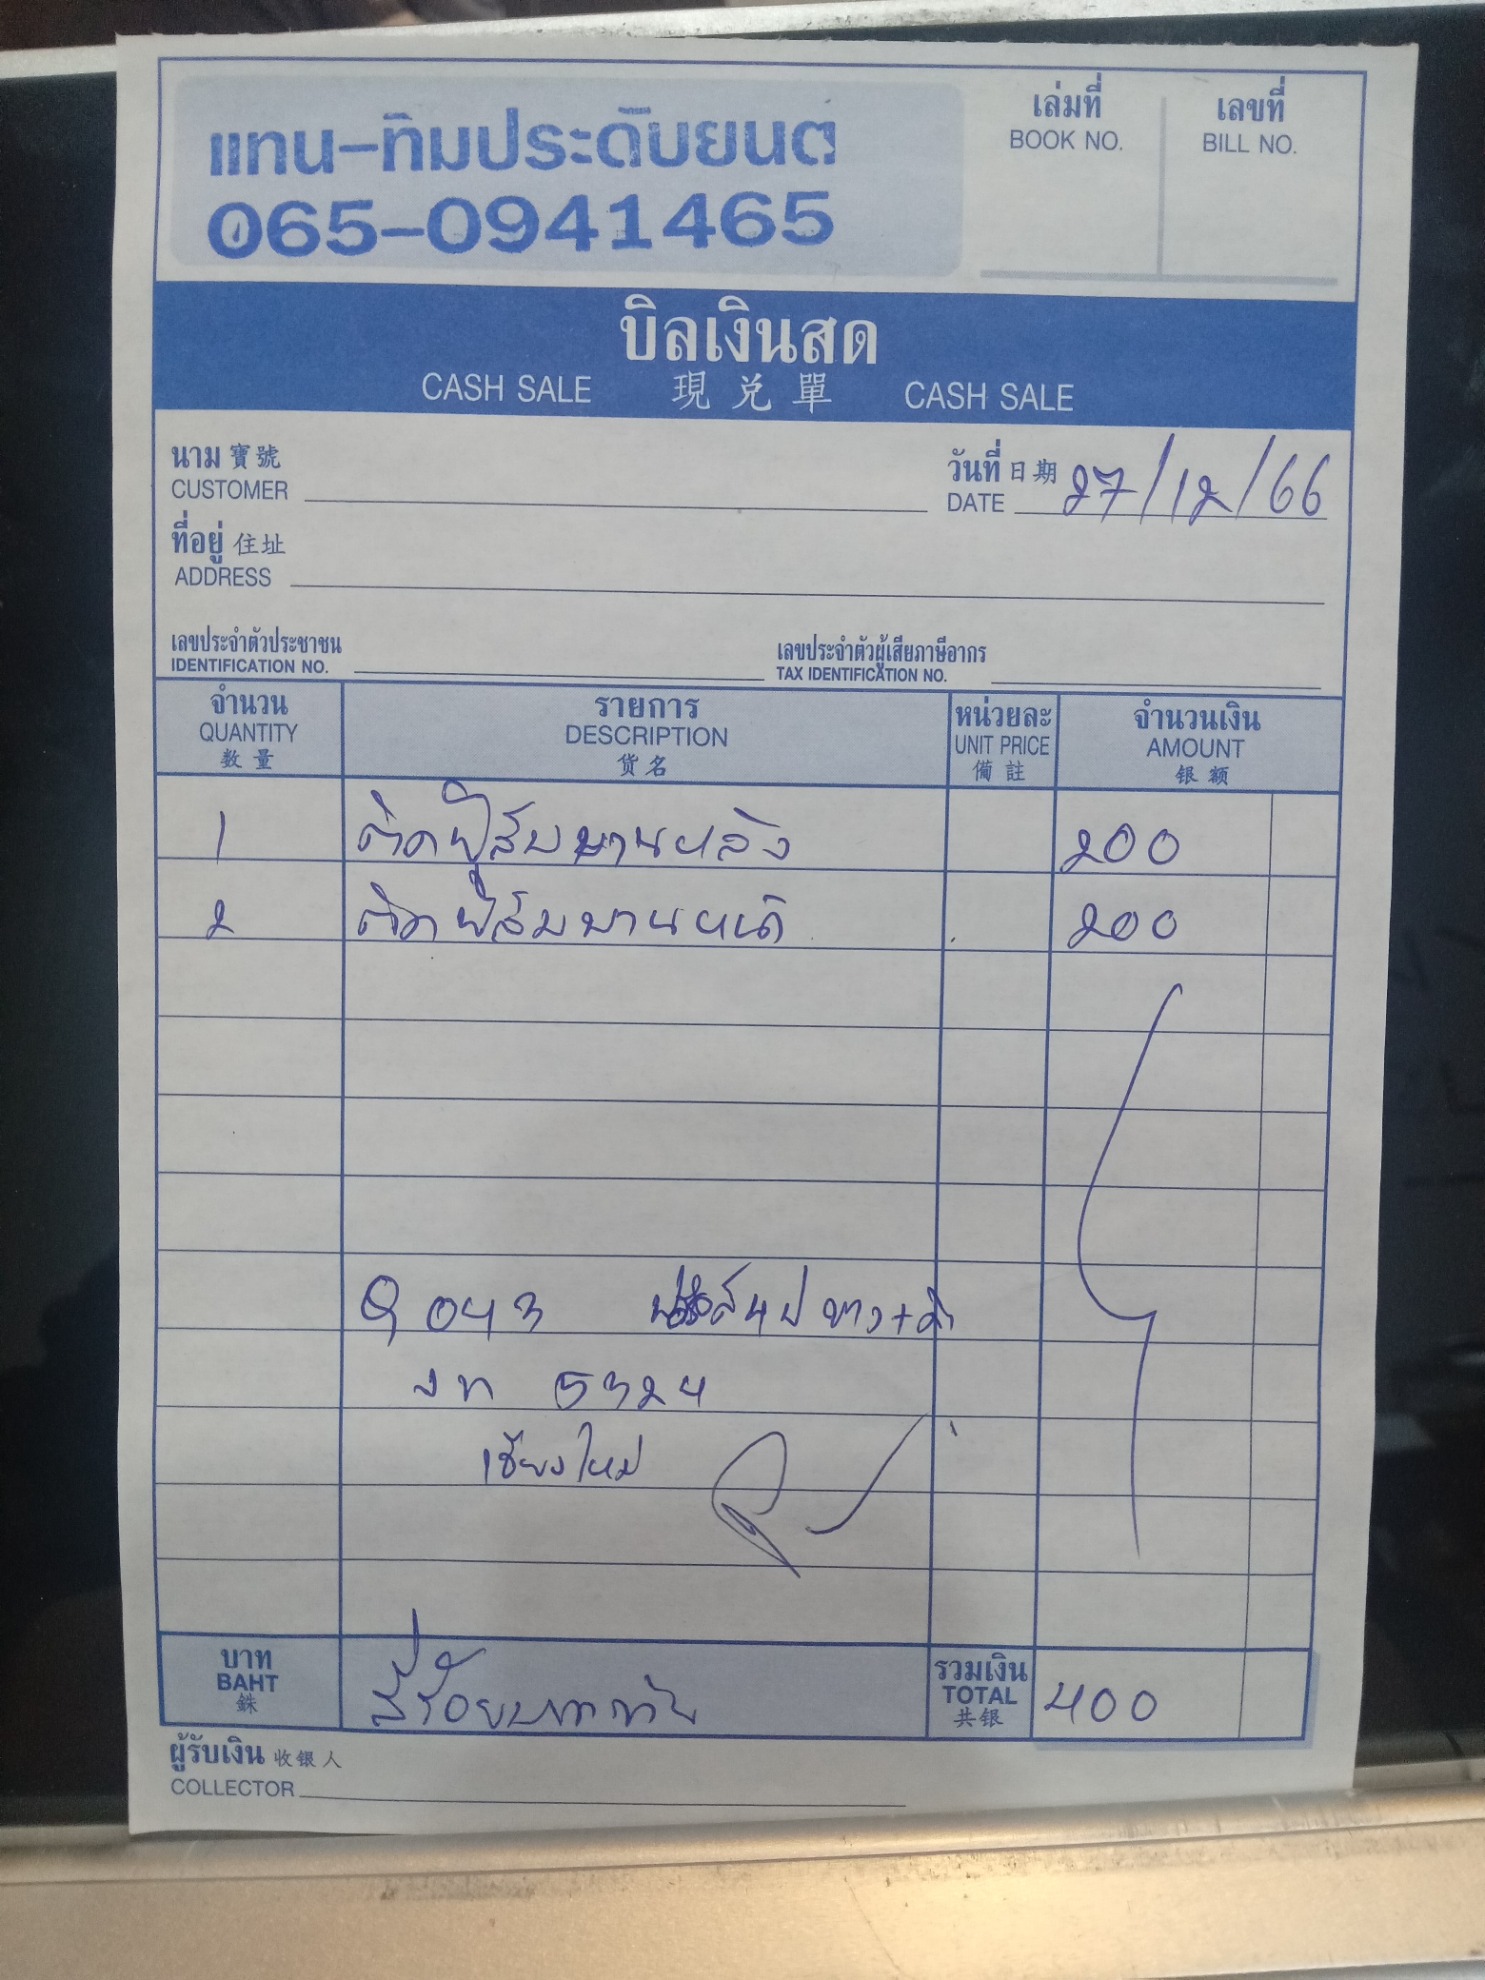 แทน-ทิมประดับยนต์
065-0941465
เล่มที่
BOOK NO.
เลขที่
BILL NO.
บิลเงินสด
CASH SALE 現兌單 CASH SALE
นาม 寶號
CUSTOMER
วันที่ 日期
DATE 27/12/66
ที่อยู่ 住址
ADDRESS
เลขประจำตัวประชาชน
IDENTIFICATION NO.
เลขประจำตัวผู้เสียภาษีอากร
TAX IDENTIFICATION NO.
จำนวน
QUANTITY
数量
รายการ
DESCRIPTION
货名
หน่วยละ
UNIT PRICE
備註
จำนวนเงิน
AMOUNT
银额
1 200
2 200
Q 043
5324
เชียงใหม่
บาท
BAHT
銖
สี่ร้อยบาทถ้วน
รวมเงิน
TOTAL
共银
400
ผู้รับเงิน 收银人
COLLECTOR